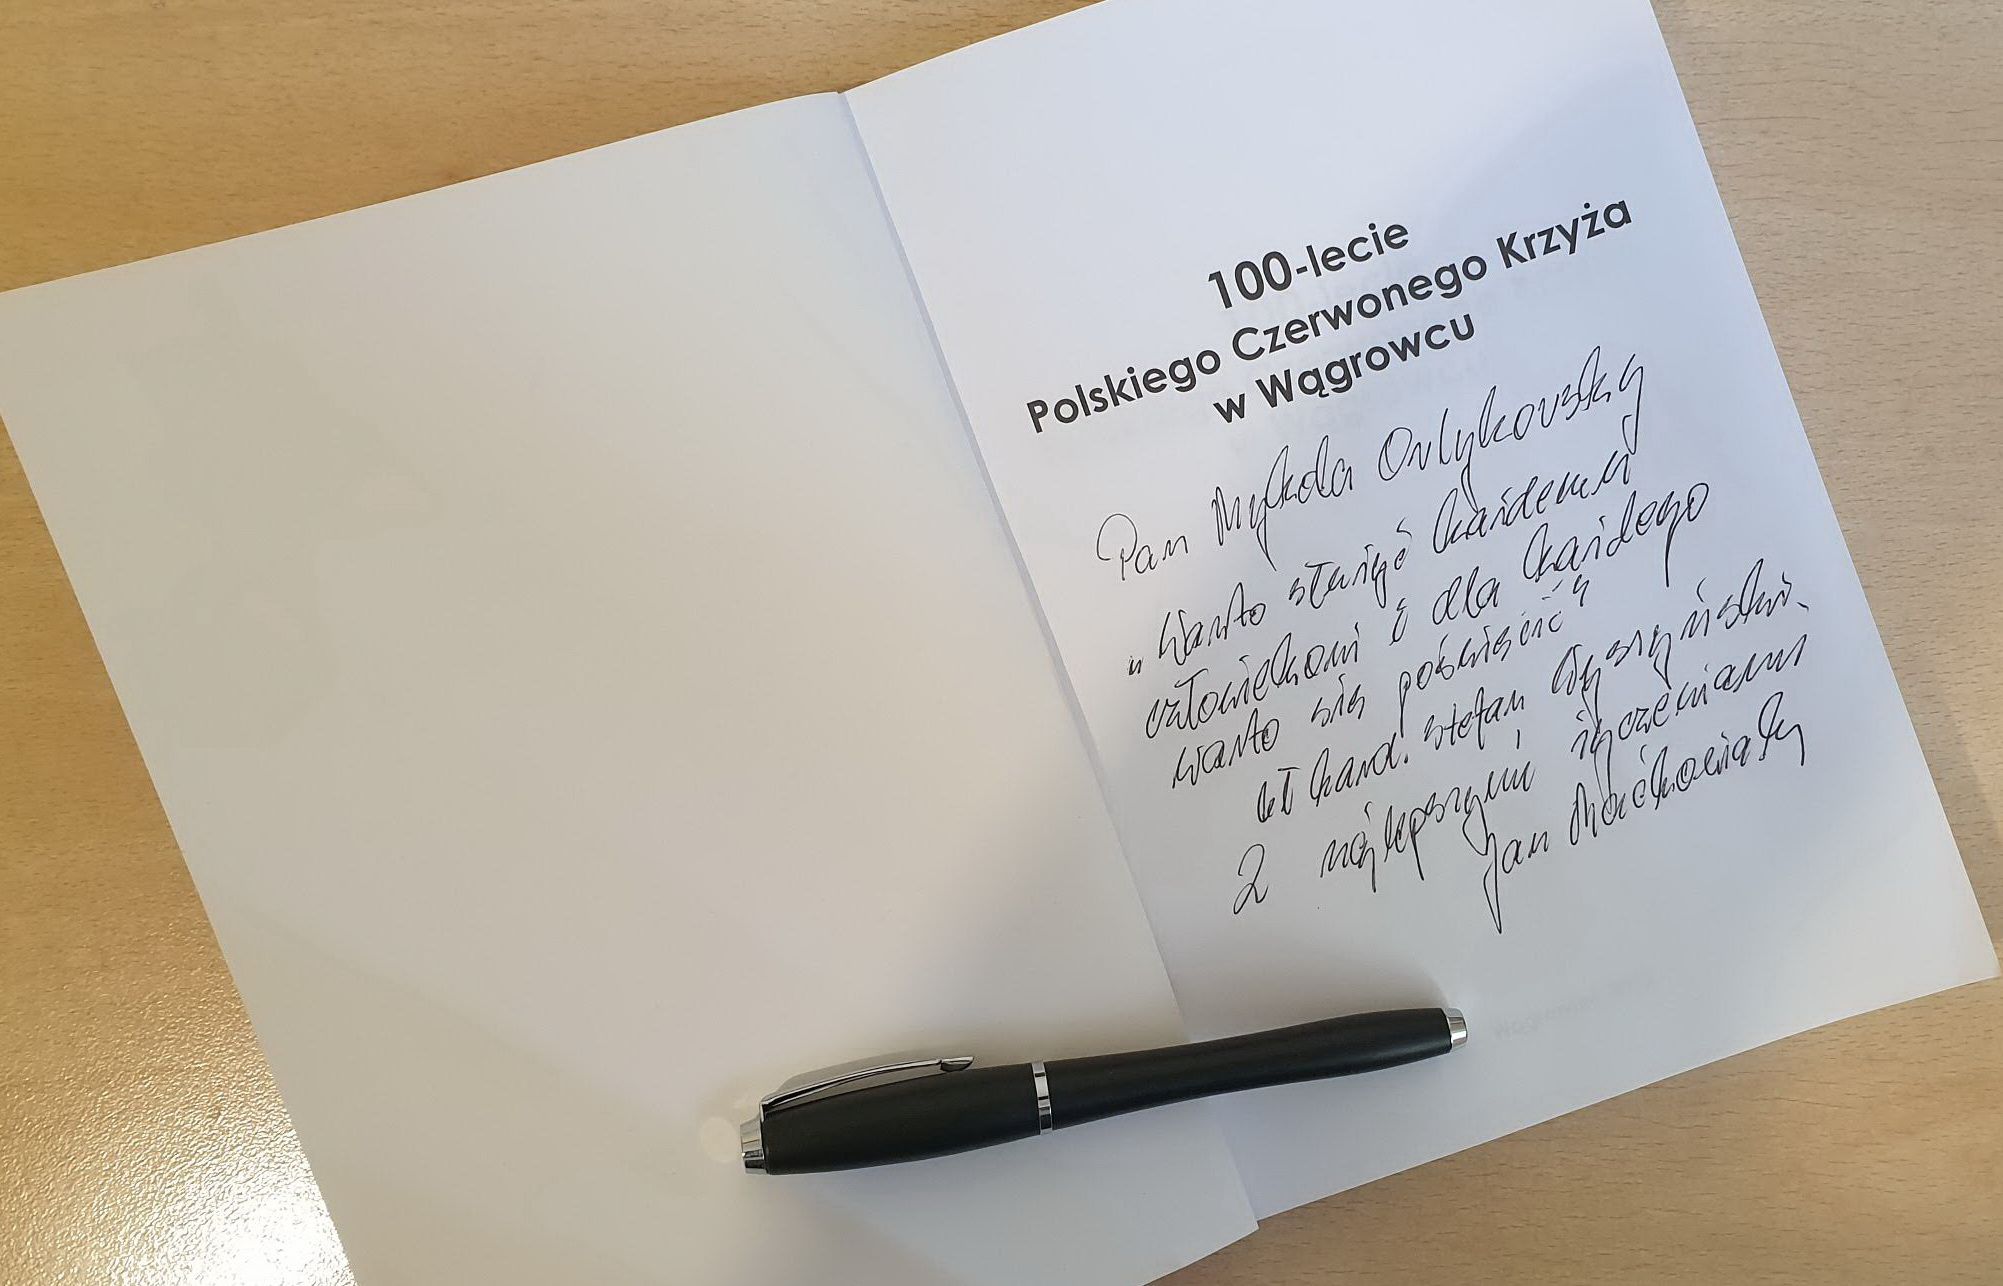 100-lecie
Polskiego Czerwonego Krzyża
w Wągrowcu
Pan Mykola Orlykovsky
„Warto służyć każdemu
człowiekowi i dla każdego
warto się poświęcić"
kard. Stefan Wyszyński.
Z najlepszymi życzeniami
Jan Maćkowiak